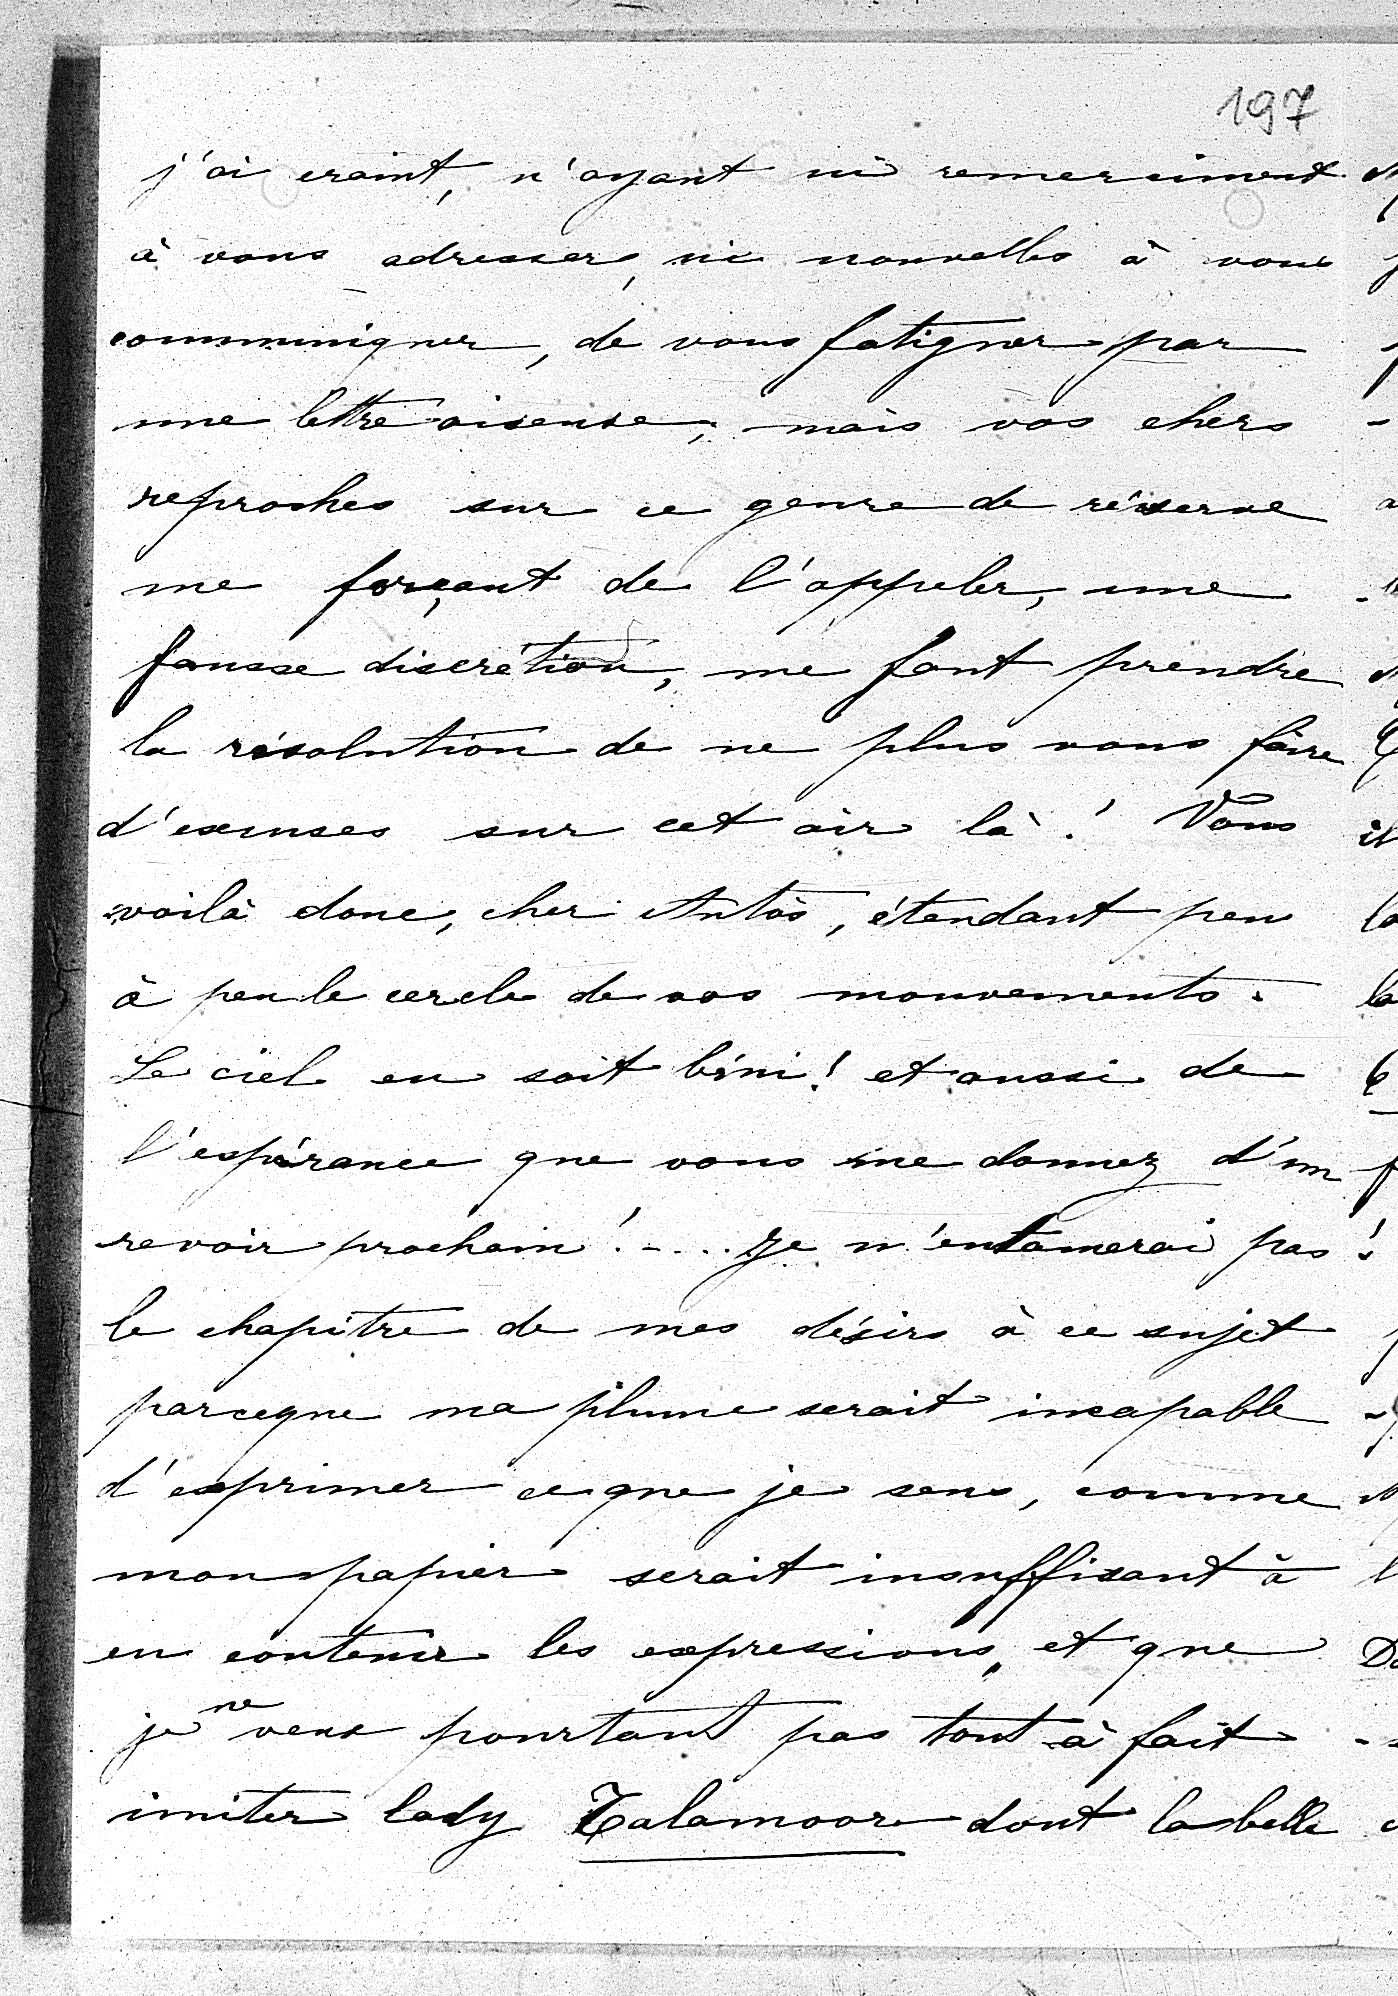 197
j'ai craint, n'ayant ni remerciment
à vous adresser, ni nouvelles à vous
communiquer, de vous fatiguer par
une lettre oiseuse; mais vos chers
reproches sur ce genre de réserve
me forçant de l'appeler, une
fausse discrétion, me font prendre
la résolution de ne plus vous faire
d'excuses sur cet air là! Vous
voilà donc, cher Antôs, étendant peu
à peu le cercle de vos mouvements.
Le ciel en soit béni! et aussi de
l'espérance que vous me donnez d'un
revoir prochain!..... Je n'entamerai pas
le chapitre de mes désirs à ce sujet
parceque ma plume serait incapable
d'exprimer ce que je sens, comme
mon papier serait insuffisant à
en contenir les expressions, et que
je ne veux pourtant pas tout à fait
imiter lady Talamoor dont la belle